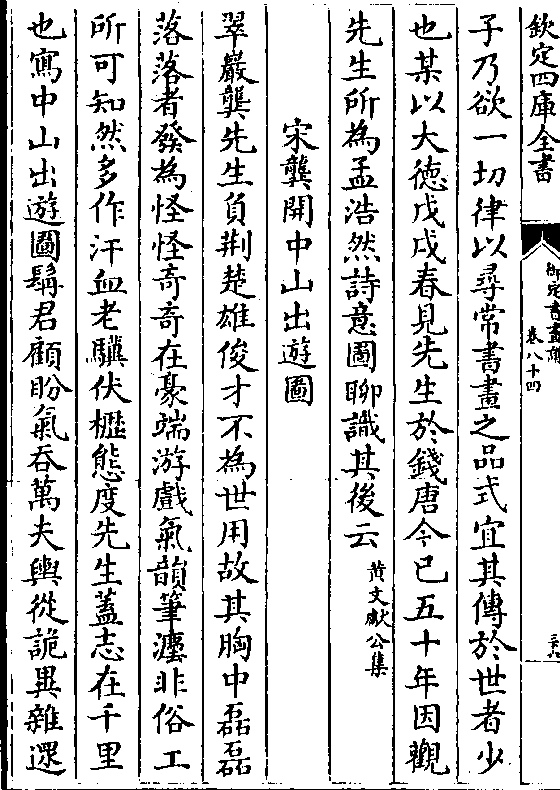 欽定四庫全書
御定書畫譜
卷八十四
子乃欲一切律以尋常書畫之品式宜其傳於世者少
也某以大德戊戌春見先生於錢唐今已五十年因觀
先生所為孟浩然詩意圖聊識其後云黃文獻公集
宋龔開中山出遊圖
翠巖龔先生負荆楚雄俊才不為世用故其胸中磊磊
落落者發為怪怪奇奇在豪端游戲氣韻筆灋非俗工
所可知然多作汗血老驥伏櫪態度先生蓋志在千里
也寫中山出遊圖髯君顧盼氣吞萬夫輿從詭異雜遝